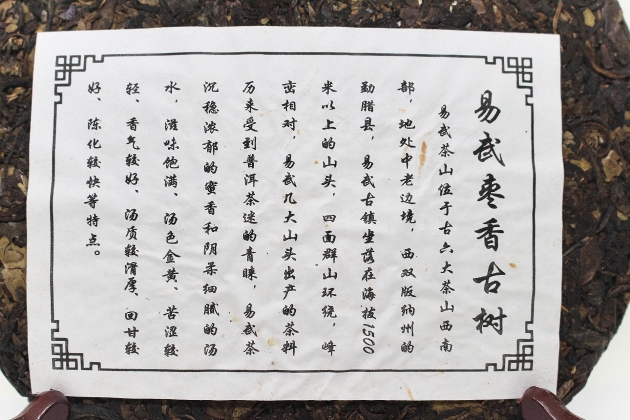 易武枣香古树
易武茶山位于古六大茶山西南
部，地处中老边境，西双版纳州的
勐腊县，易武古镇坐落在海拔1500
米以上的山头，四面群山环绕，峰
峦相对，易武几大山头出产的茶料
历来受到普洱茶迷的青睐，易武茶
沉稳浓郁的蜜香和阴柔细腻的汤
水，滋味饱满、汤色金黄、苦涩较
轻、香气较好、汤质较滑厚、回甘较
好、陈化较快等特点。